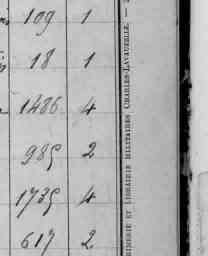 109 1
18 1
1486 4
985 2
1735 4
617 2
IMERIE ET LIBRAIRIE MILITAIRES CHARLES-LAVAUZELLE. —